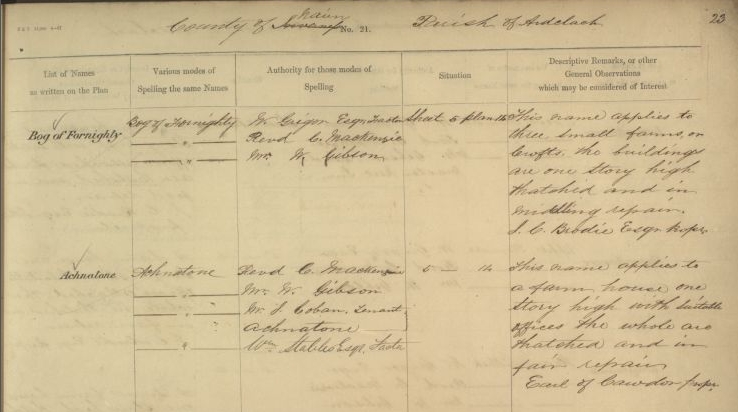 County of Nairn No. 21. Parish of Ardclach 23
List of Names
as written on the Plan
Various modes of
Spelling the same Names
Authority for those modes of
Spelling
Situation
Descriptive Remarks, or other
General Observations
which may be considered of Interest
Bog of Fornighty
Bog of Fornighty
"
"
W. Grigor Esqr. Factor
Revd C. Mackenzie
Mr. W. Gibson
Sheet 5 plan 14
This name applies to
three small farms, or
Crofts. the buildings
are one story high
thatched and in
middling repair.
J. C. Brodie Esqr. propr.
Achnatone
Achnatone
"
"
"
Revd C. Mackenzie
Mr. W. Gibson
Mr. J. Tenant,
Achnatone
Wm. Stables Esqr. Factor
5 — 14
This name applies to
a farm house one
story high with suitable
offices the whole are
thatched and in
fair repair.
Earl of Cawdor propr.